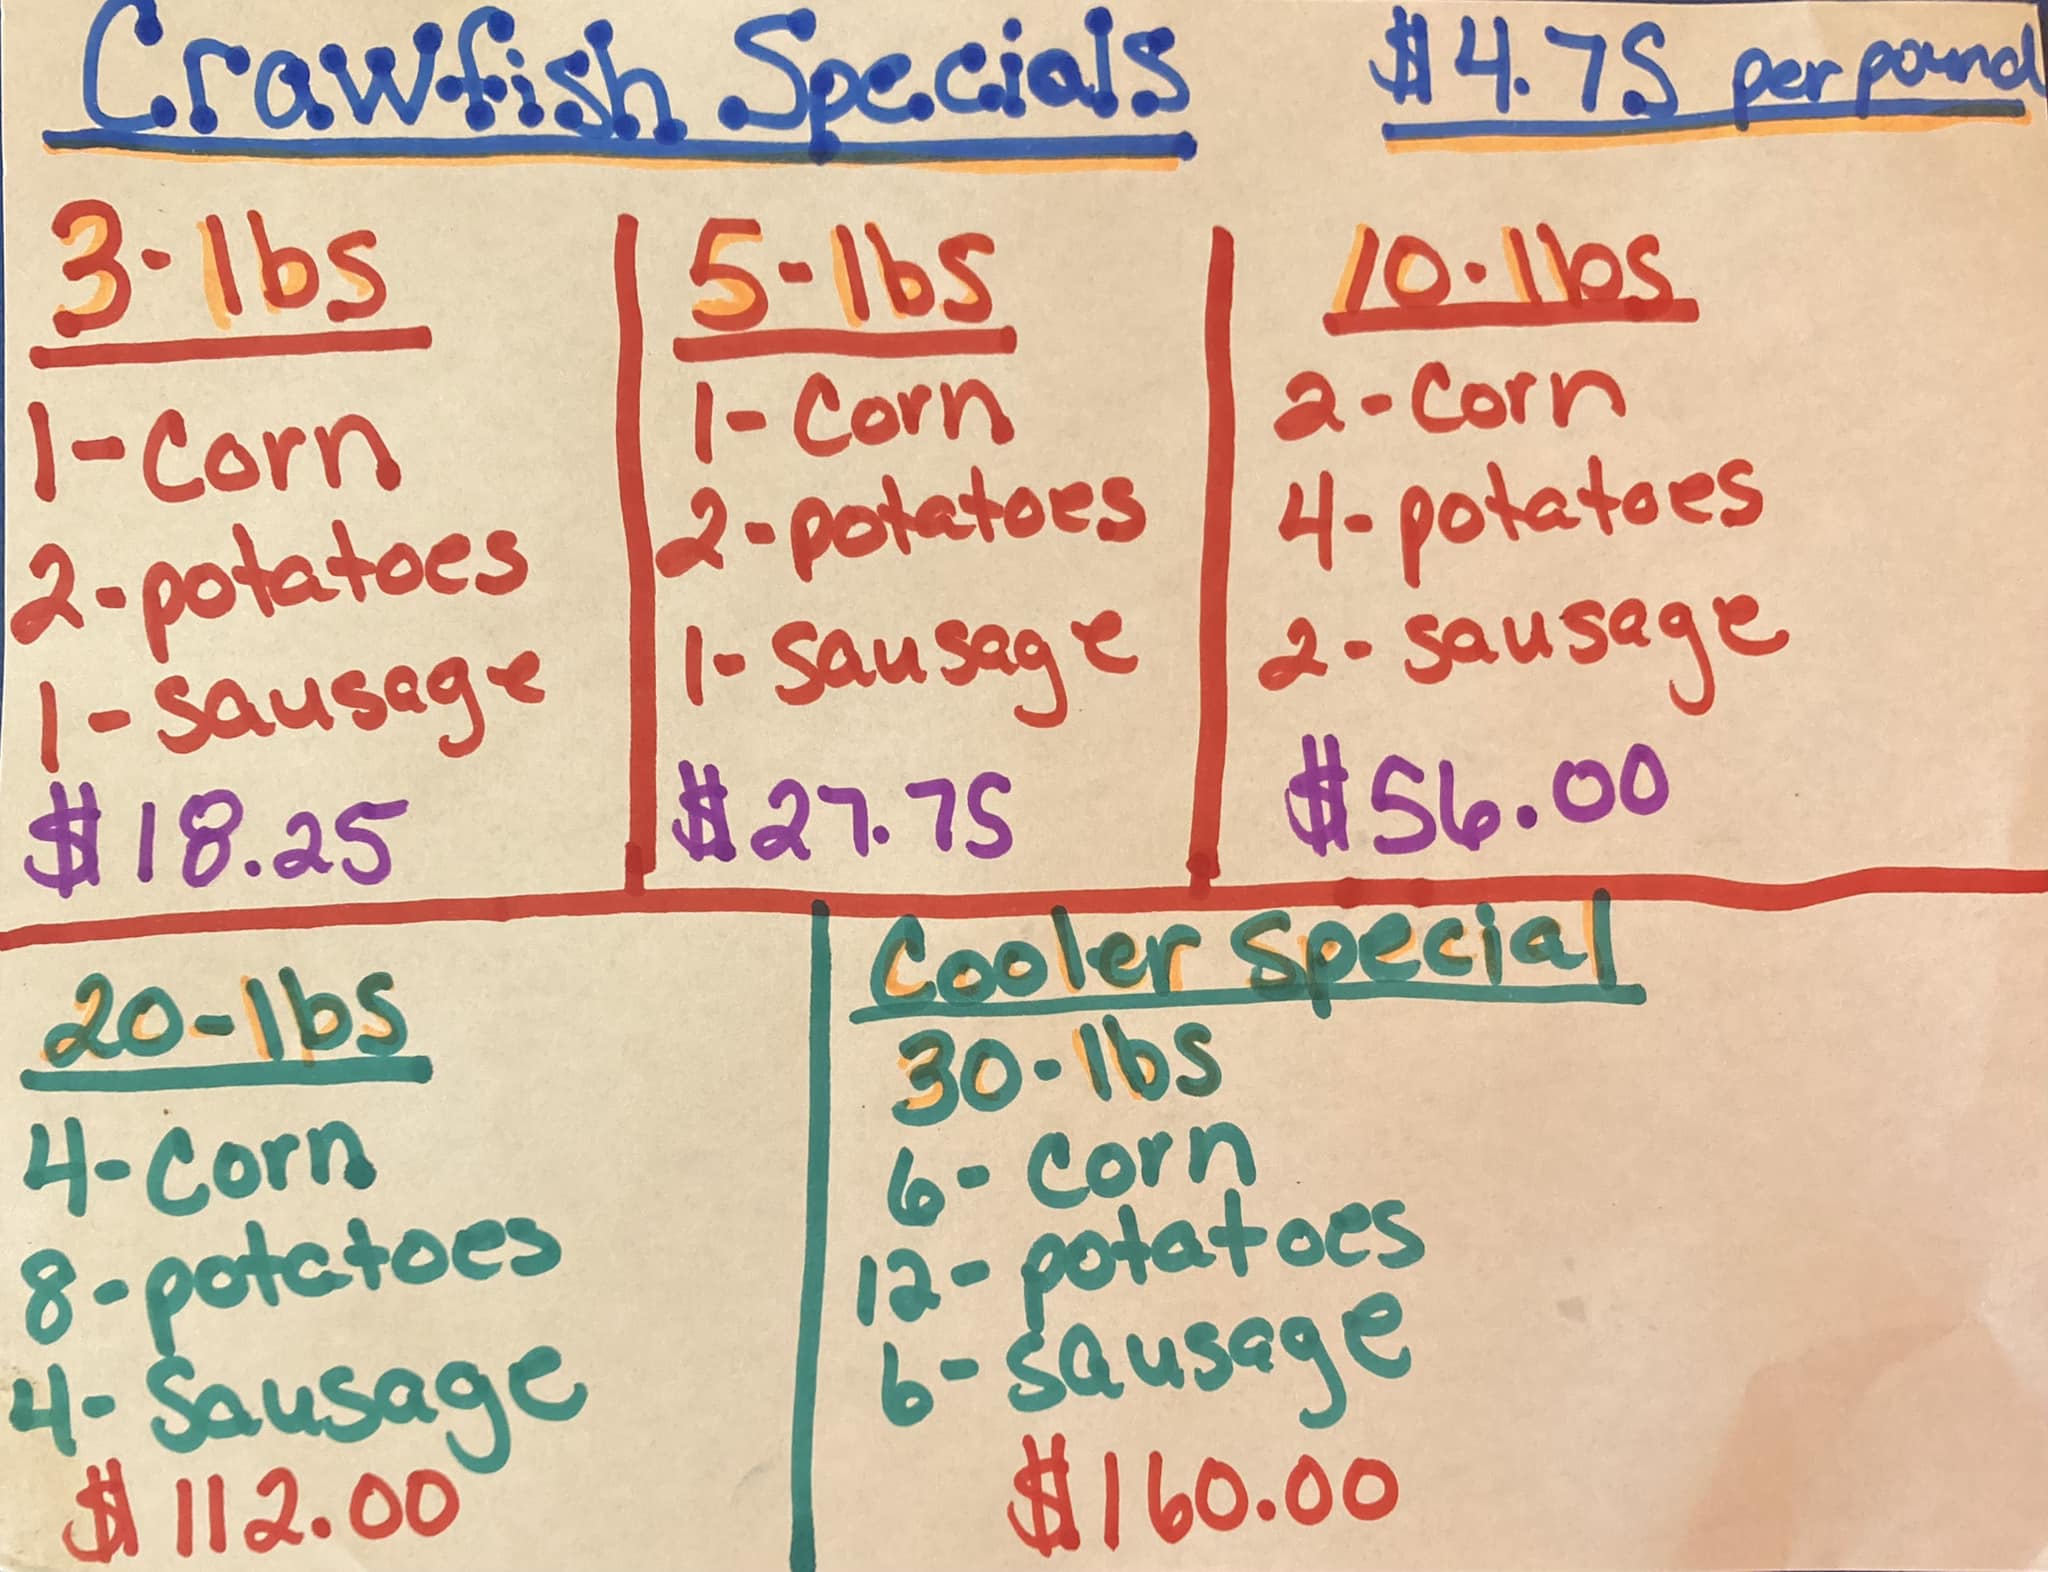 Crawfish Specials $4.75 per pound
3-lbs
1-Corn
2-potatoes
1-sausage
$18.25
5-lbs
1-Corn
2-potatoes
1-sausage
$27.75
10-lbs
2-Corn
4-potatoes
2-sausage
$56.00
20-lbs
4-Corn
8-potatoes
4-Sausage
$112.00
Cooler Special
30-lbs
6-Corn
12-potatoes
6-sausage
$160.00